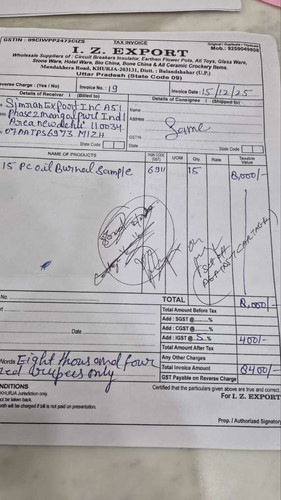 GSTIN : 09CIWPP2473G1ZS
TAX INVOICE
Original / Duplicate / Triplicate
I. Z. EXPORT
Mob.: 9259048908
Wholesale Suppliers of : Circuit Breakers Insulator, Earthen Flower Pots, All Toys, Glass Ware,
Stone Ware, Hotel Ware, Bio China, Bone China & All Ceramic Crockery Items.
Mundakhera Road, KHURJA-203131, Distt. : Bulandshahar (U.P.)
Uttar Pradesh (State Code 09)
everse Charge : (Yes/No)
Invoice No. : 19
Invoice Date : 15/12/25
Details of Receiver (Billed to)
Details of Consignee (Shipped to)
Simran Export Inc A51
Phase 2 mangolpuri Ind
Area new delhi 110034
07AATPS6973M1ZH
State Code
Name
Address
GSTIN
Same
State
State Code
NAME OF PRODUCTS
HSN CODE (GST)
UOM
Qty.
Rate
Taxable Value
15 PC oil Burner Sample
6911
15
8,000/-
AGAINST CARTAGE
No.
TOTAL
8,000/-
Total Amount Before Tax
Add : SGST @ %
Add : CGST @ %
Date
Add : IGST @ 5 %
400/-
Total Amount After Tax
Any Other Charges
Words Eight thousand four
red rupees only
Total Invoice Amount
8400/-
GST Payable on Reverse Charge
NDITIONS
KHURJA Jurisdiction only.
not be taken back.
nth will be charged if bill is not paid on presentation.
Certified that the particulars given above are true and correct.
For I. Z. EXPORT
Prop. / Authorized Signatory